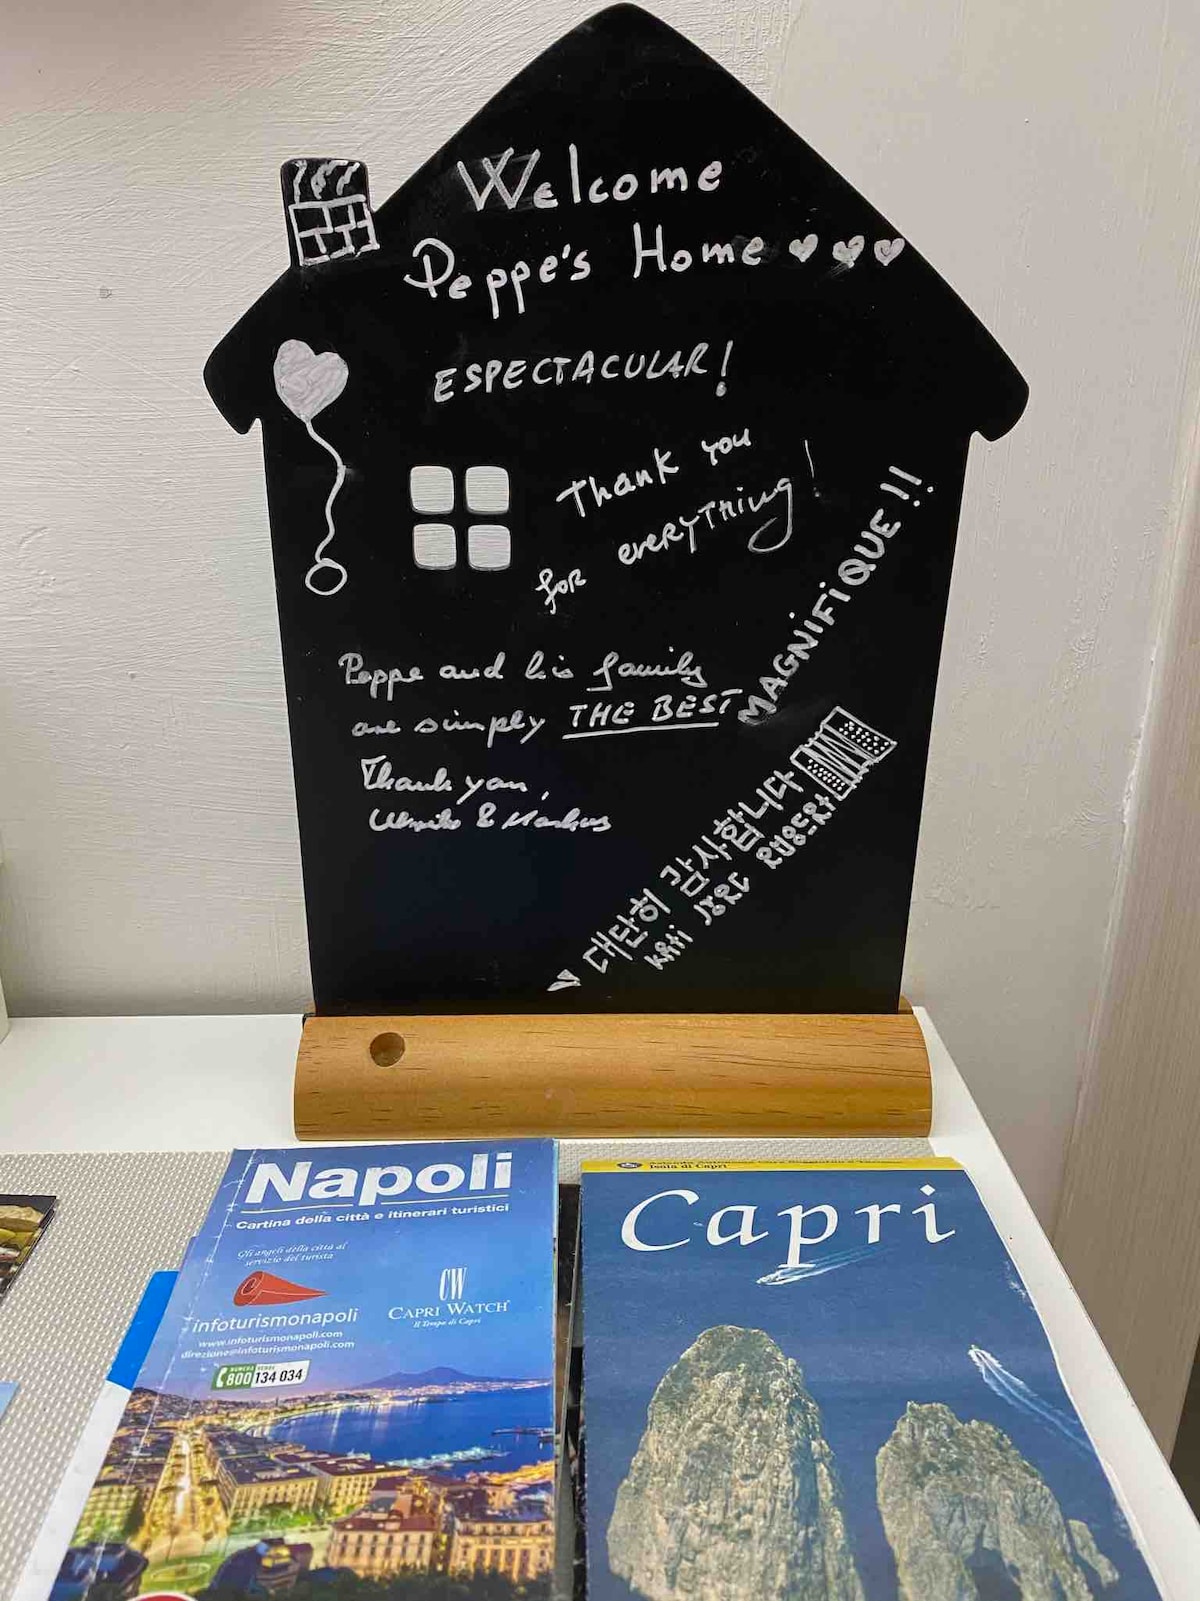 Welcome
Peppe's Home
ESPECTACULAR!
Thank you
for everything!
MAGNIFIQUE!!
Peppe and his family
are simply THE BEST
Thank you,
& Markus
대단히 감사합니다
Napoli
Cartina della città e itinerari turistici
Gli angeli della città al
servizio del turista
infoturismonapoli
www.infoturismonapoli.com
direzione@infoturismonapoli.com
NUMERO VERDE
800 134 034
CW
CAPRI WATCH
Il Tempo di Capri
Isola di Capri
Capri